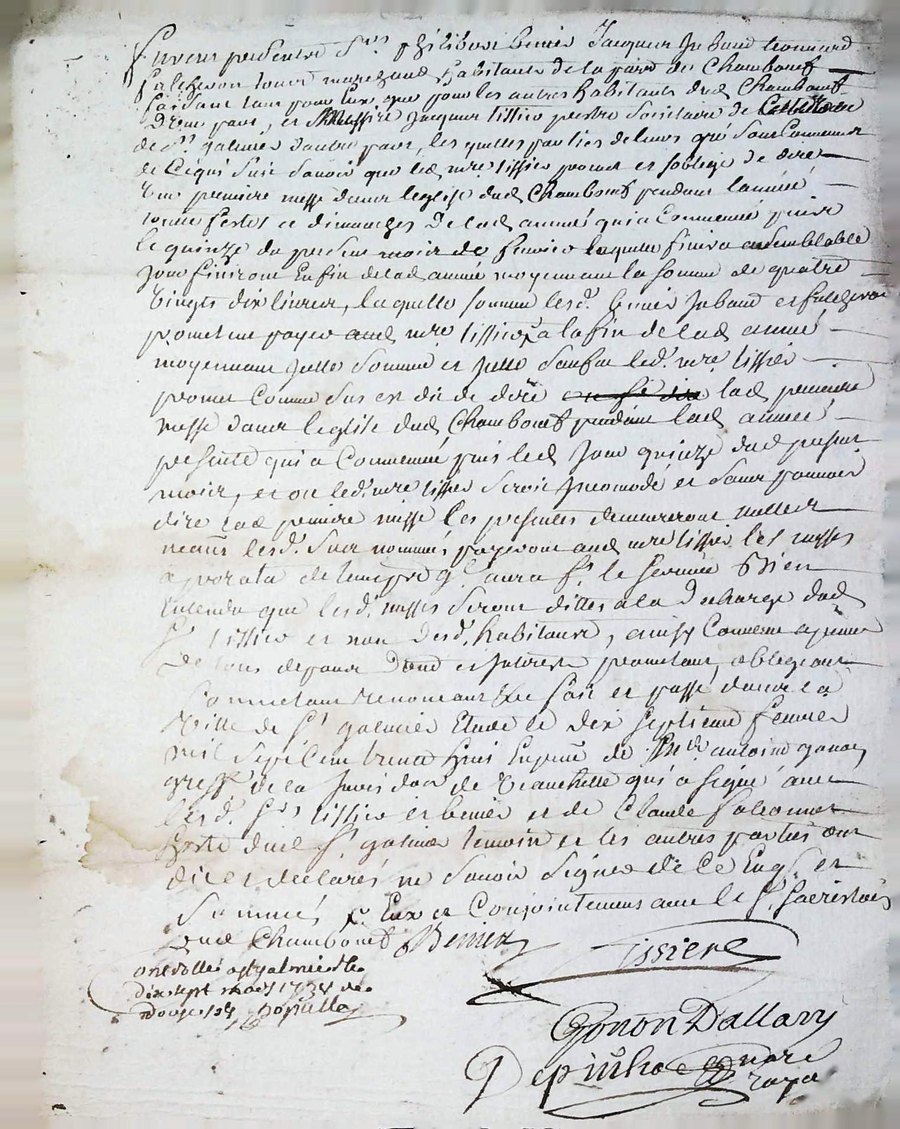 furent presents Srs philibert benier Jacques Jabaud leonnard
falchevon tous marchand habitants de la parr de Chambouf
faisant tant pour Eux que pour les autres habitants dud Chambouf
D'une part, et Messire Jacques tissier prestre societaire de
de St galmier d'autre part, les quelles parties de leurs gré sont Convenues
de Cequi suit savoir que led mre tissier promet et soblige de dire
Une premiere messe dans leglise dud Chambouf pendant lannée
toutes festes et dimanches De lad année qui a Commencé puis
le quinze du present mois de fevrier laquelle finira a semblable
Jour finiront Enfin de lad année moyennant la somme de quatre
Vingts dix livres, laquelle somme lesd. benier Jabaud et falchevon
promettent payer aud mre tissier a la fin de lad année
moyennant Jcelle somme et Jcelle led. mre tissier
promet Comme sus est dit de dire lad premiere
messe dans leglise dud Chambouf pendant lad année
presente qui a Commencé puis led Jour quinze dud present
mois, et ou led. mre tissier seroit Jncomodé et sans pouvoir
dire lad premiere messe les presentes demeureront nulles
neanms lesd. sus nommés payeront aud mre tissier les messes
a prorata de temps q. aura ft. le service Bien
Entendu que lesd. messes seront dittes a la Decharge dud
Sr tissier et non desd. habitants, ainsy Convenu a peine
de tous depans Dond et Jnterets promettant, obligeant
soumettant renonceant &c fait et passé dans la
Ville de St galmier Etude le dix septieme fevrier
mil sept Cent trente huit En pnce de Me antoine gonon
greff. de la Jurisdon de Vauchette qui a signé avec
lesd. Srs tissier et benier et de Claude falconnet
hoste dud St galmier temoin et les autres parties ont
dit et declarés ne savoir signer de Ce Enqs et
sommés p Eux et Conjointement avec le Sr sacristain
dud Chambouf Benier
Tissiere
controllé a st galmier le
dix sept
douze sols
Gonon Dallary
nore
roya